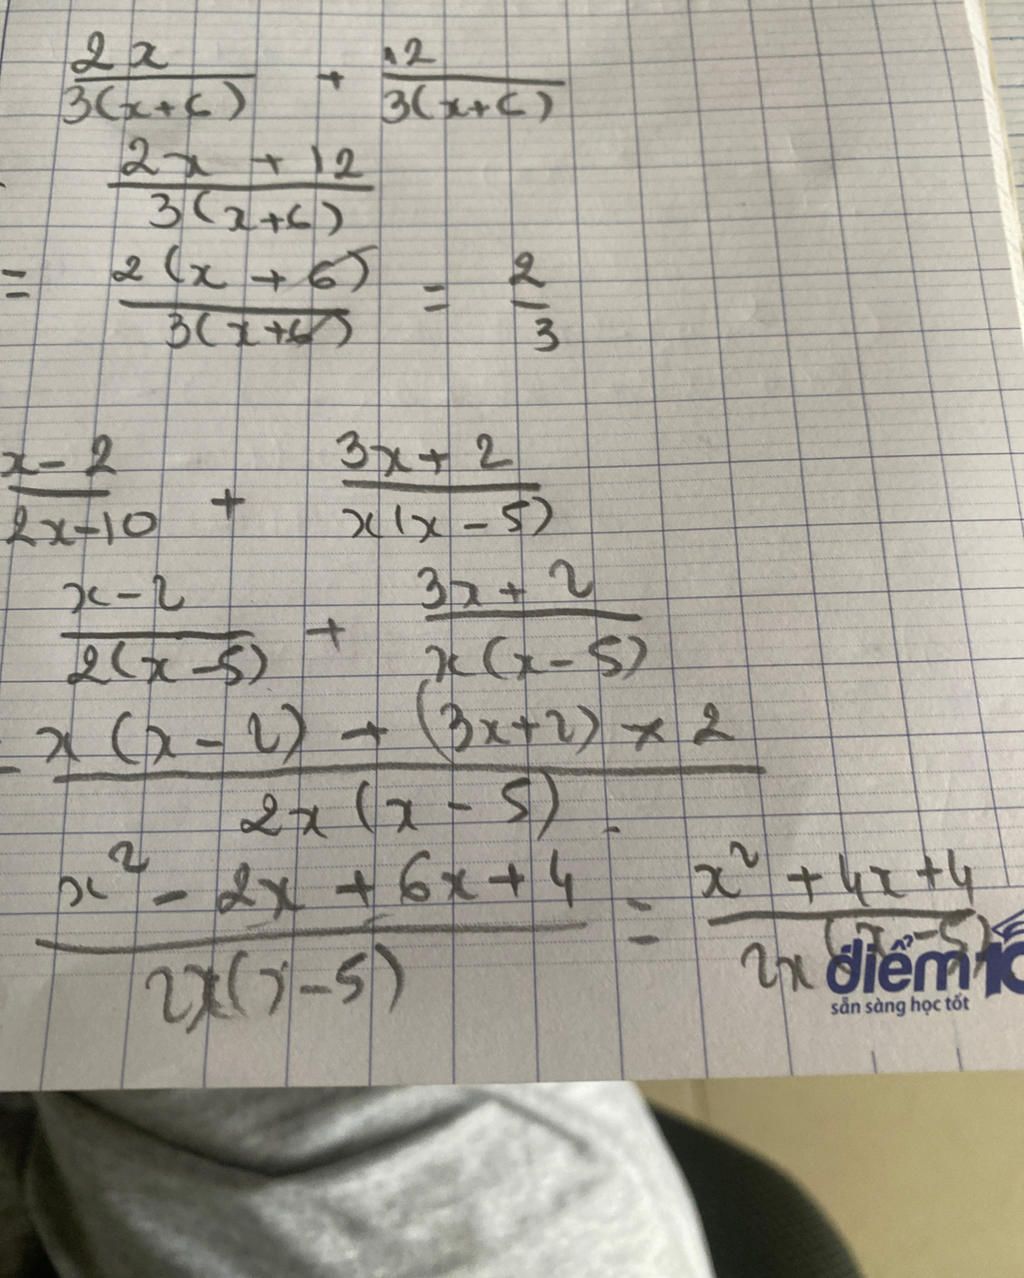 2x/3(x+6) + 12/3(x+6)
2x + 12/3(x+6)
= 2(x + 6)/3(x+6) = 2/3
x-2/2x-10 + 3x+2/x(x-5)
x-2/2(x-5) + 3x+2/x(x-5)
x(x-2) + (3x+2) × 2/2x(x-5)
x² - 2x + 6x + 4/2x(x-5) = x² + 4x + 4/2x(x-5)
điểm 10
sẵn sàng học tốt